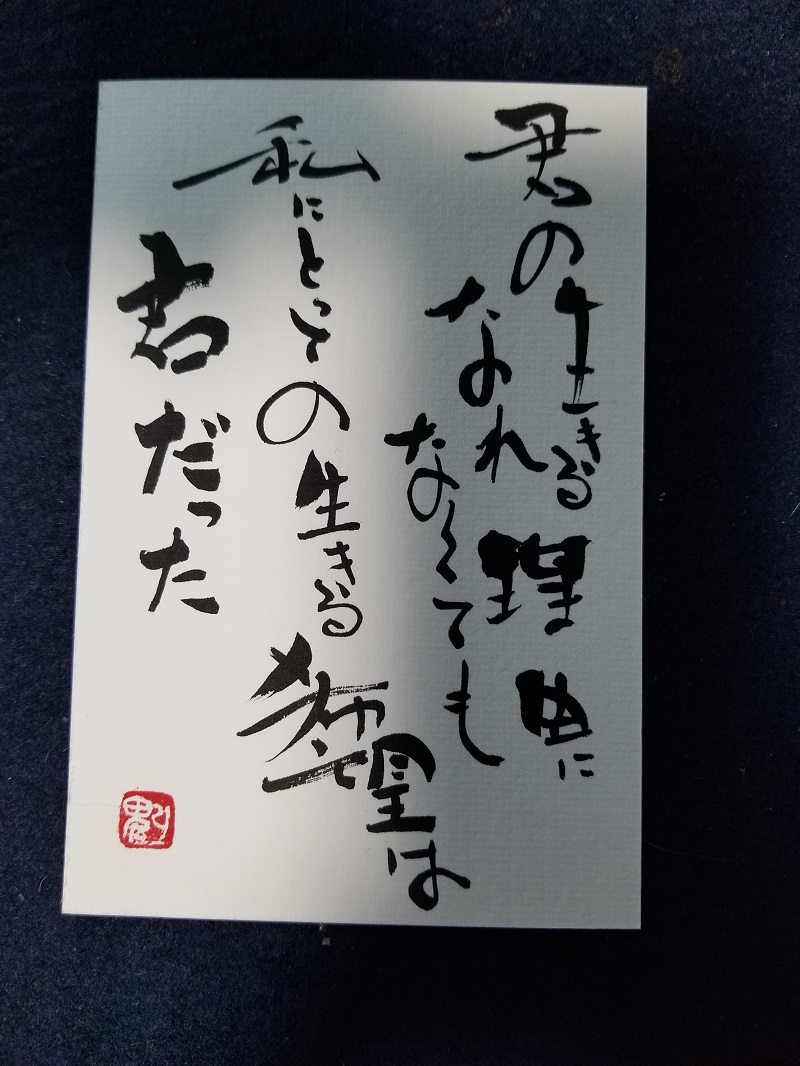 君の生きる理由に
なれ
なくても
私にとっての生きる希望は
君だった